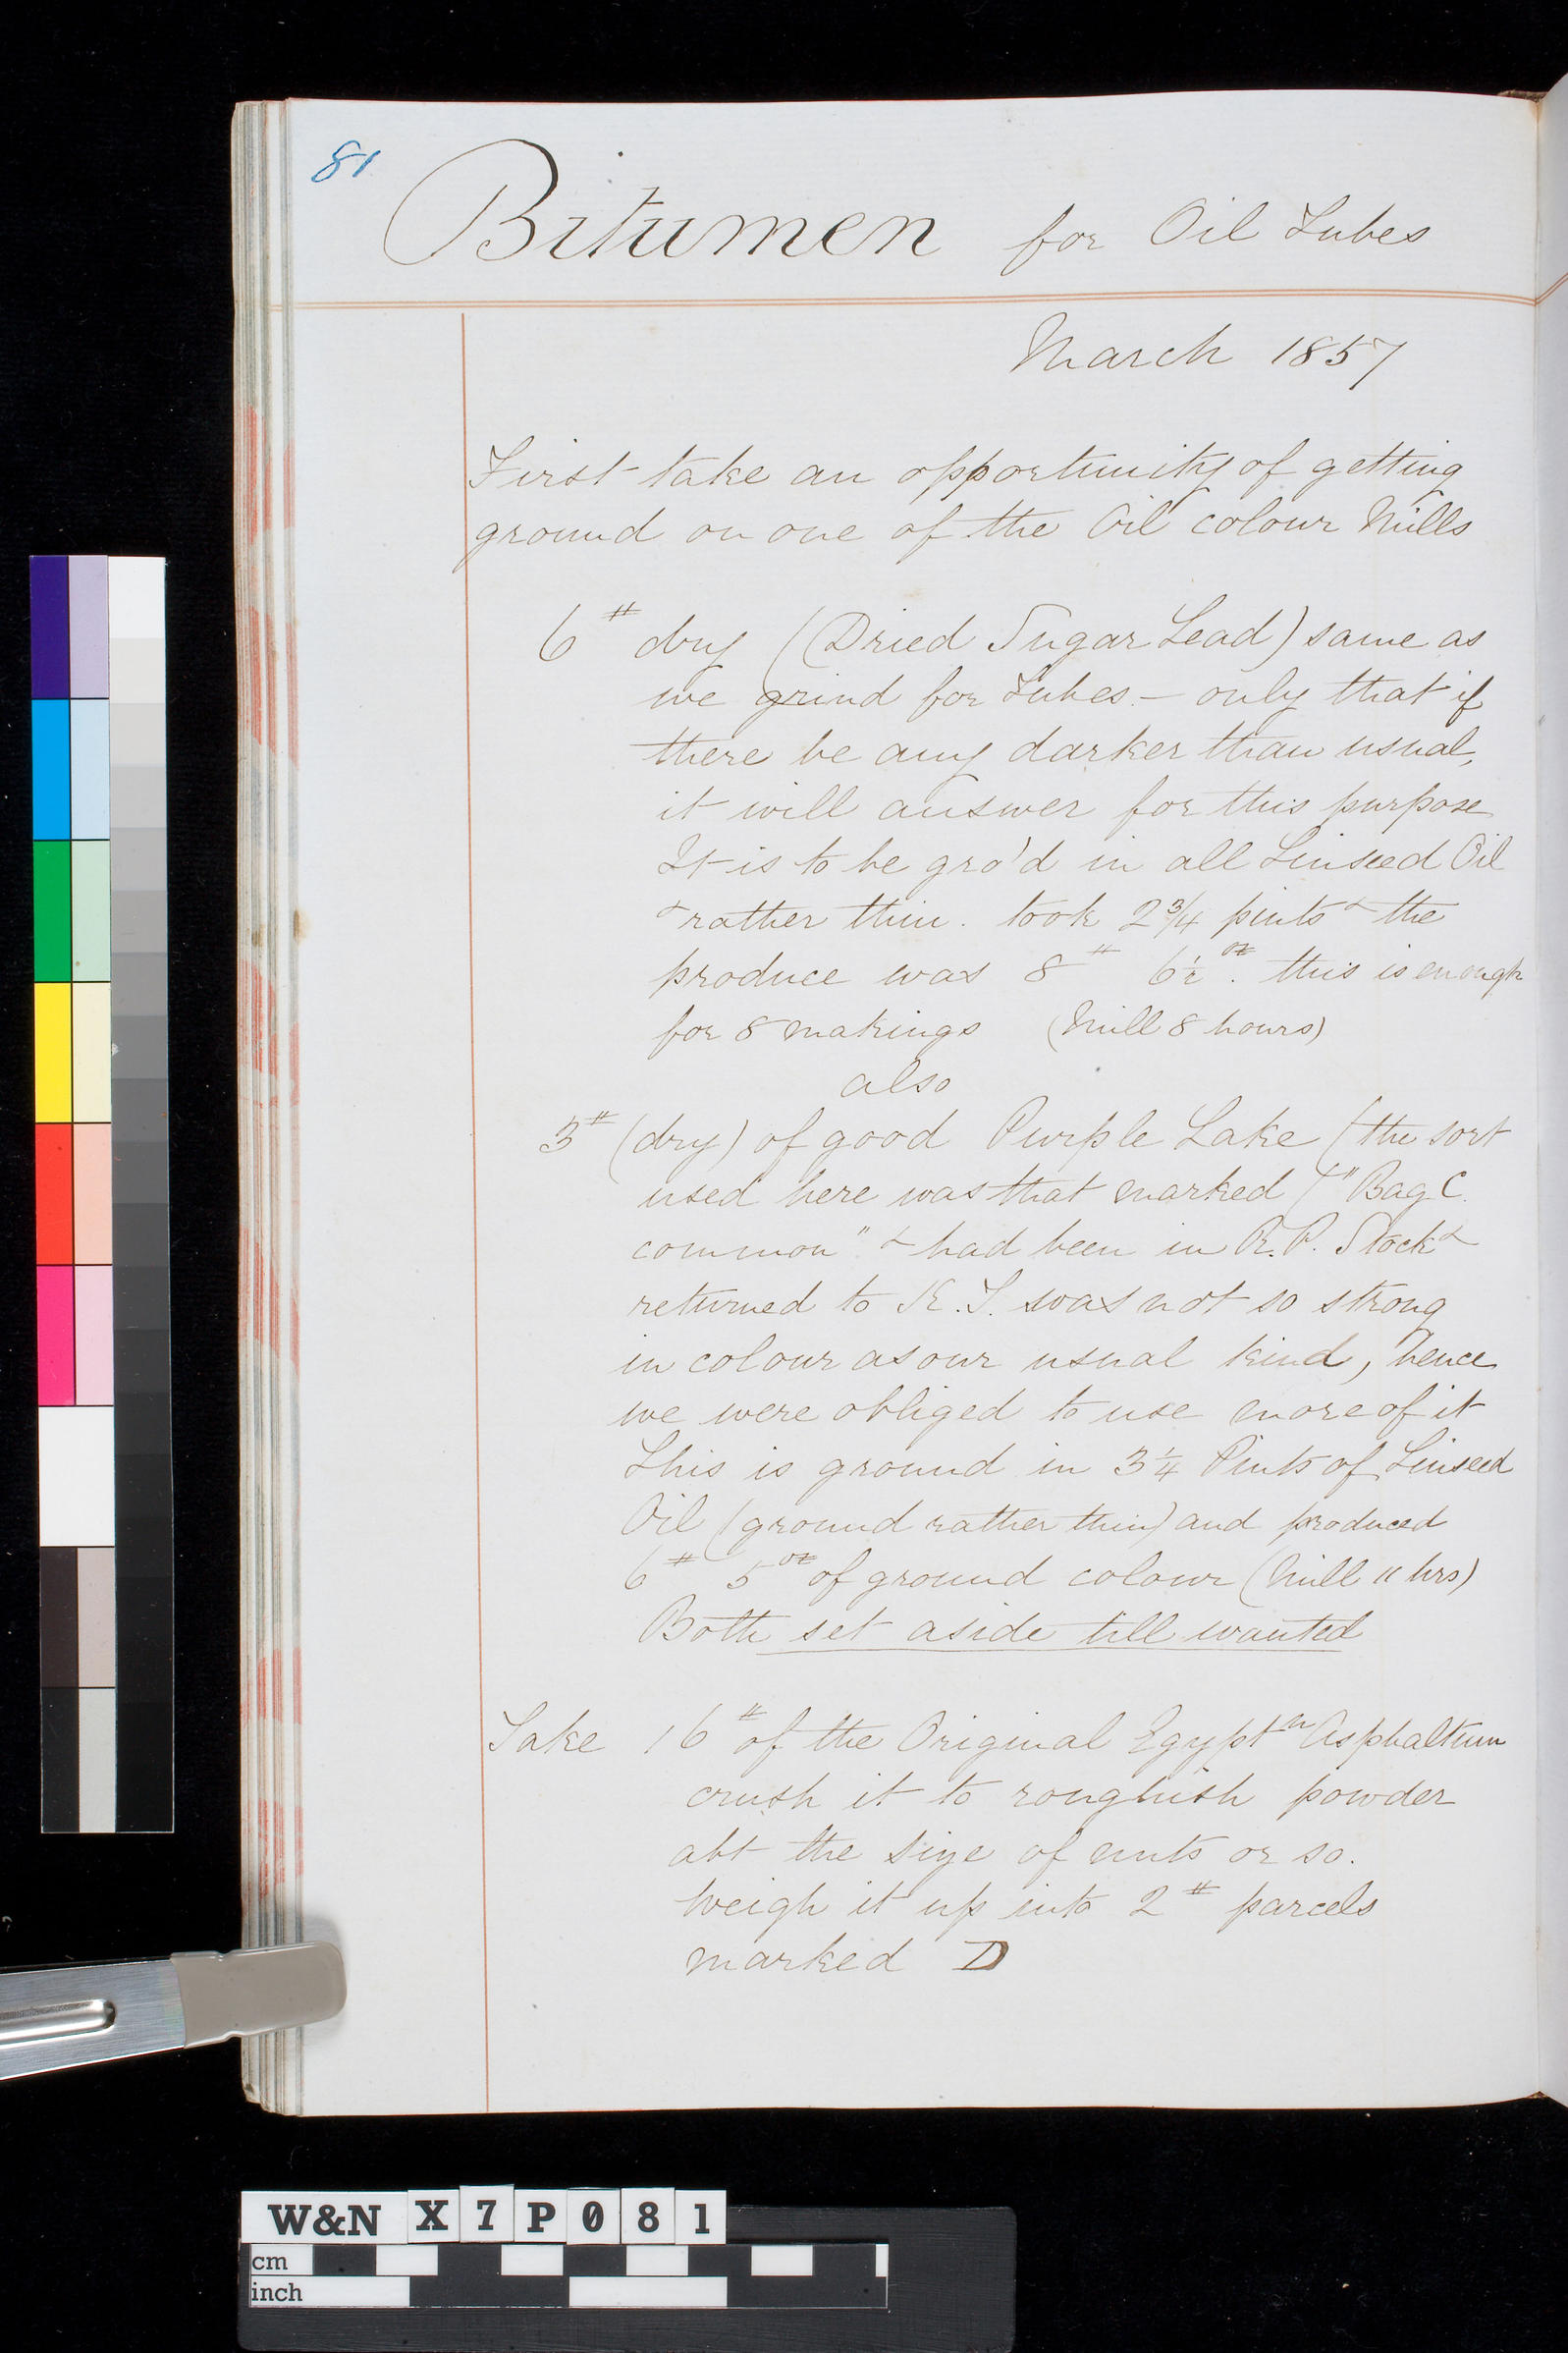 81
Bitumen for Oil Tubes
March 1857
First take an opportunity of getting
ground on one of the Oil colour Mills
6 # dry (Dried Sugar Lead) same as
we grind for Tubes - only that if
there be any darker than usual,
it will answer for this purpose
It is to be gro'd in all Linseed Oil
& rather thin. took 2 3/4 pints & the
produce was 8 # 6 1/2 oz. this is enough
for 8 makings (Mill 8 hours)
also
3 # (dry) of good Purple Lake (the sort
used here was that marked ("Bag C
common" & had been in R.P. Stock &
returned to K.T. was not so strong
in colour as our usual kind, hence
we were obliged to use more of it
This is ground in 3 1/4 Pints of Linseed
Oil (ground rather thin) and produced
6 # 5 oz of ground colour (Mill 11 hrs)
Both set aside till wanted
Take 16 # of the Original Egypt n Asphaltum
crush it to roughish powder
abt the size of nuts or so.
Weigh it up into 2 # parcels
marked D
W&N X7P081
cm
inch